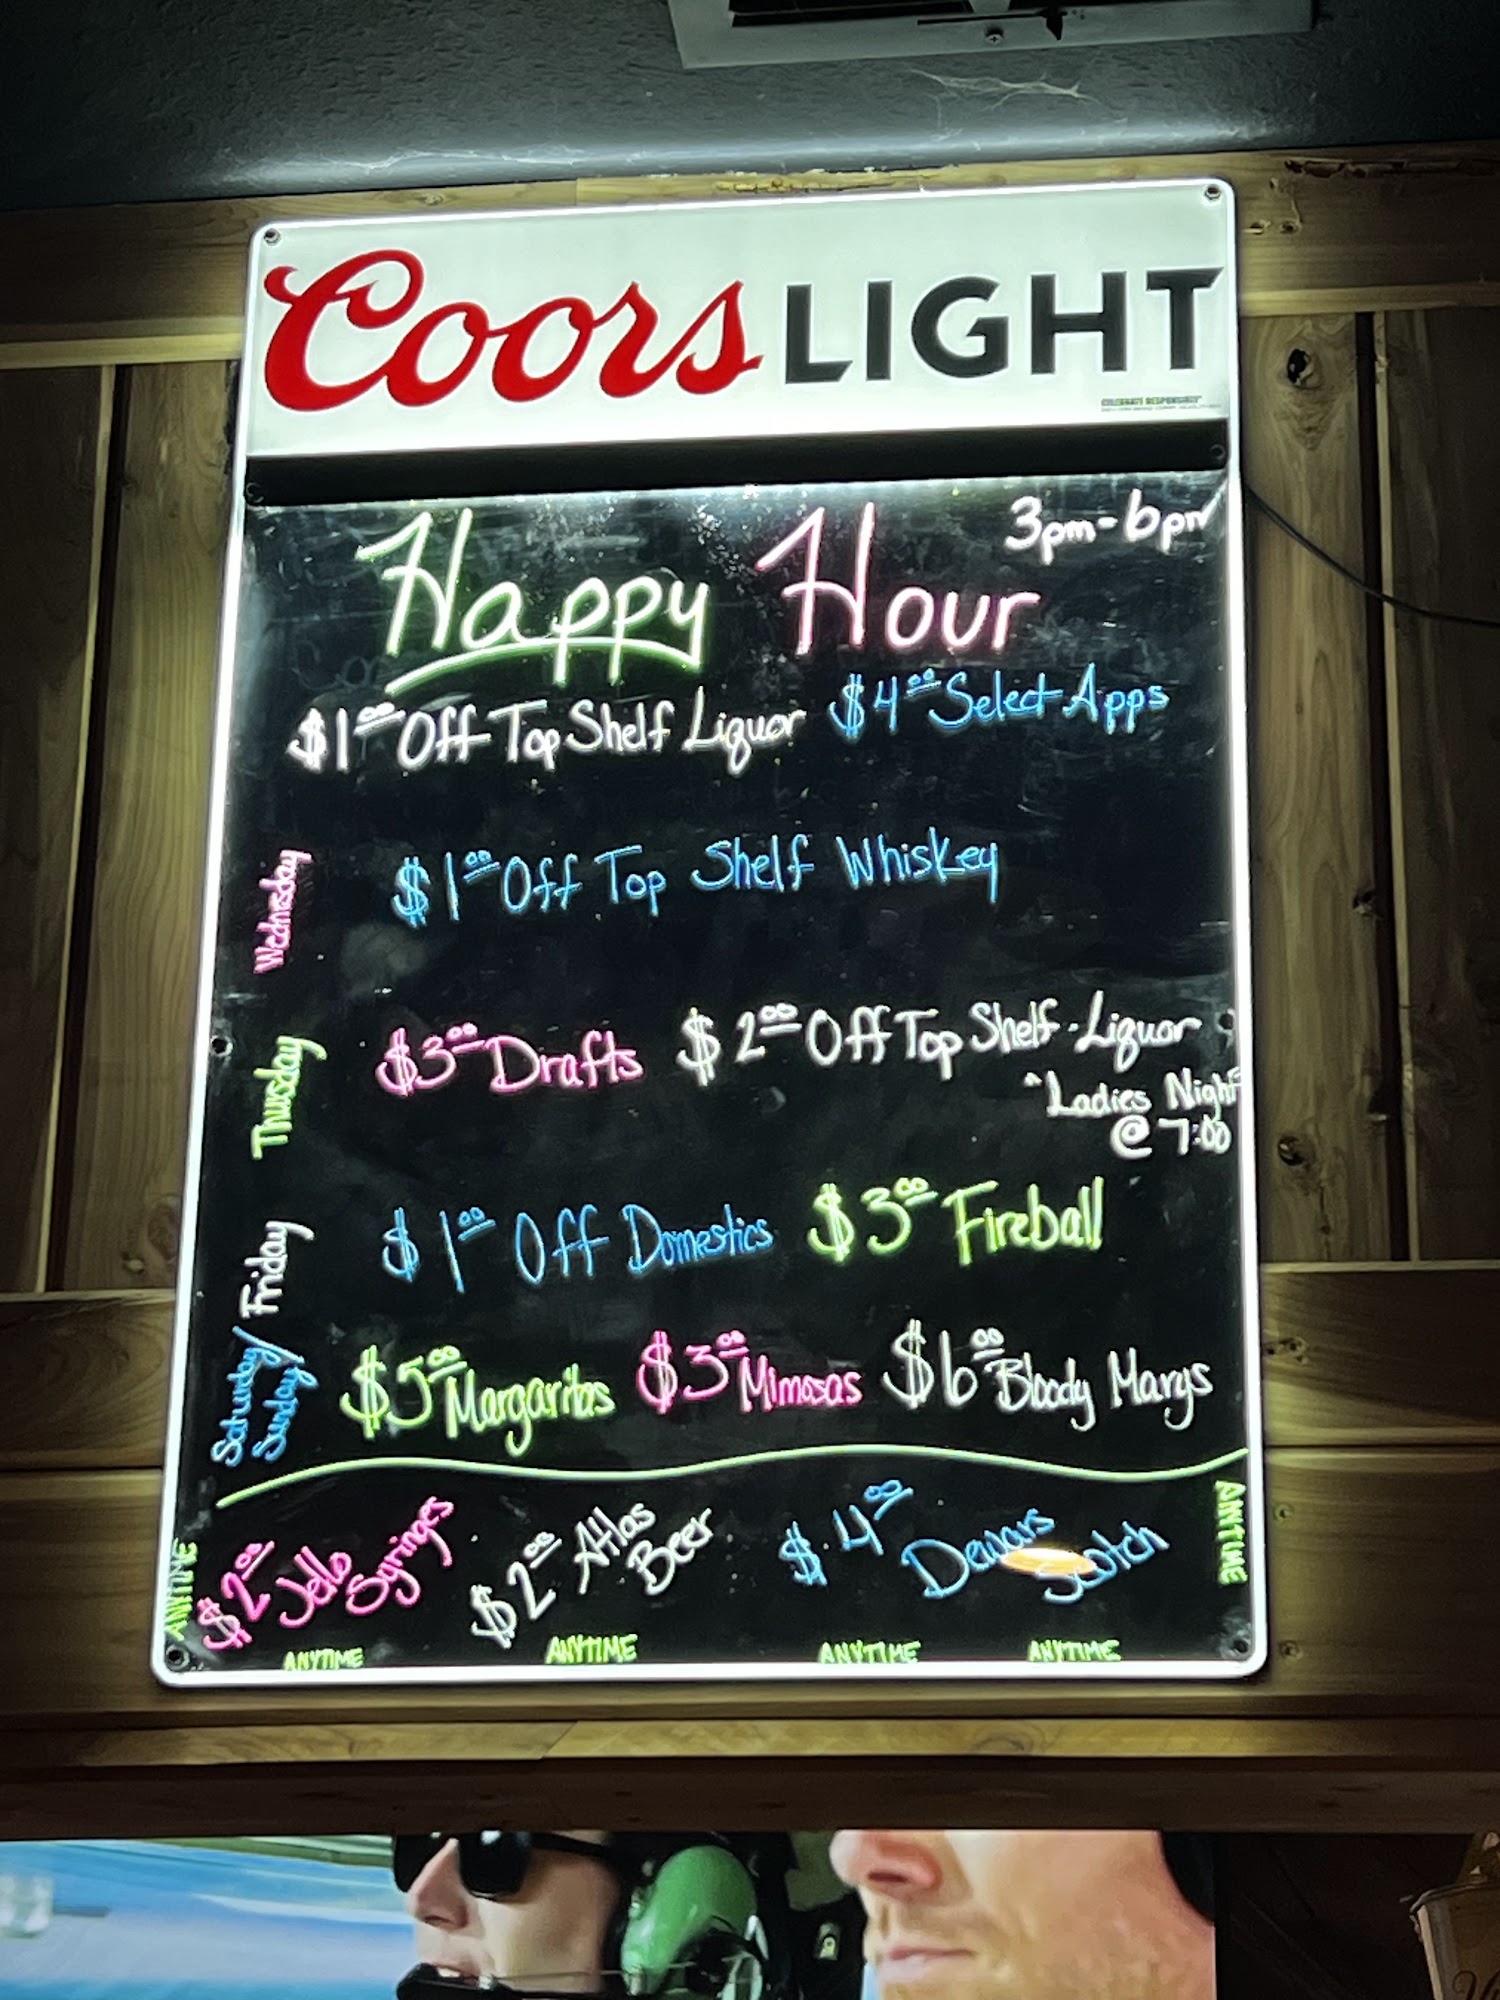 Coors LIGHT
CELEBRATE RESPONSIBLY
Happy Hour 3pm-6pm
$1.00 Off Top Shelf Liquor $4.00 Select Apps
Wednesday $1.00 Off Top Shelf Whiskey
Thursday $3.00 Drafts $2.00 Off Top Shelf Liquor
"Ladies Night"
@ 7:00
Friday $1.00 Off Domestics $3.00 Fireball
Saturday/
Sunday $5.00 Margaritas $3.00 Mimosas $6.00 Bloody Marys
ANYTIME $2.00 Jello Syringes $2.00 Atlas Beer $4.00 Dewars Scotch ANYTIME
ANYTIME ANYTIME ANYTIME ANYTIME